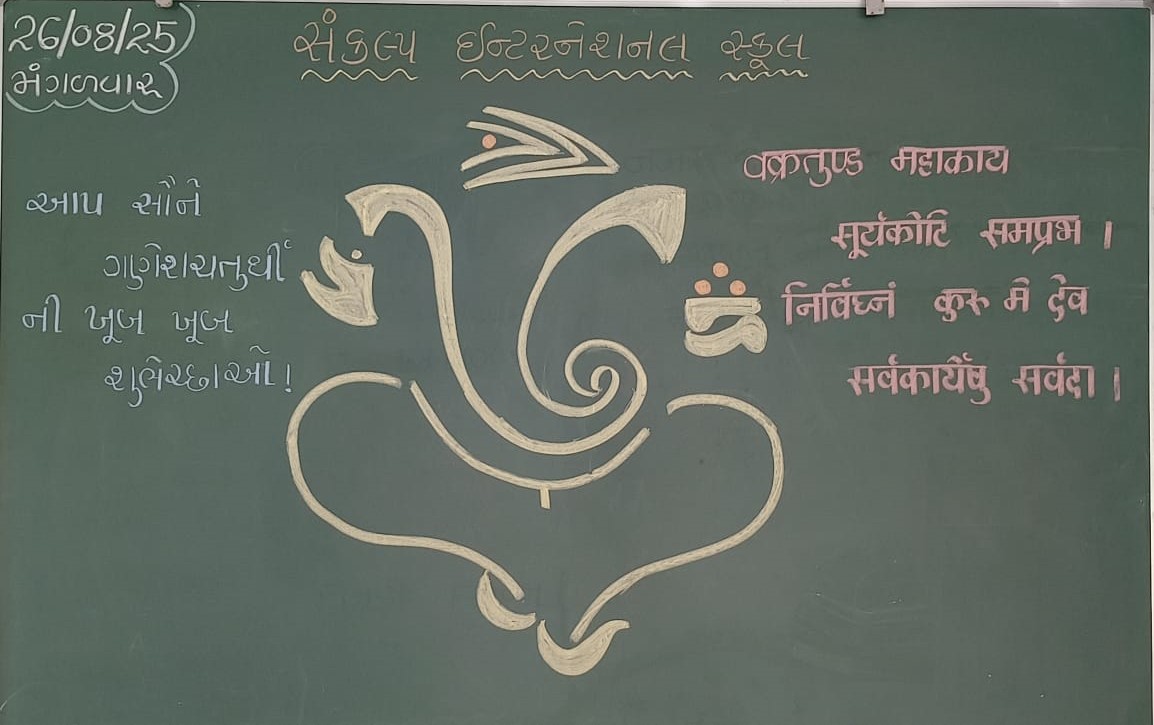 26/08/25
મંગળવાર
સંકલ્પ ઈન્ટરનેશનલ સ્કૂલ
આપ સૌને
ગણેશચતુર્થી
ની ખૂબ ખૂબ
શુભેચ્છાઓ!
वक्रतुण्ड महाकाय
सूर्यकोटि समप्रभ ।
निर्विघ्नं कुरु मे देव
सर्वकार्येषु सर्वदा ।